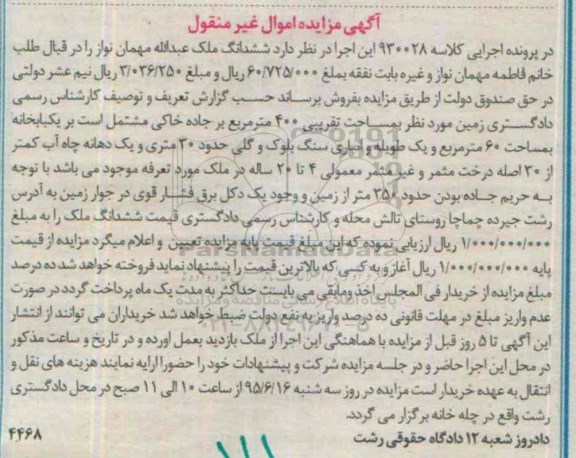 آگهی مزایده اموال غیر منقول
در پرونده اجرایی کلاسه ۹۳۰۰۲۸ این اجرا در نظر دارد ششدانگ ملک عبدالله مهمان نواز را در قبال طلب
خانم فاطمه مهمان نواز و غیره بابت نفقه بملغ ۶۰/۷۲۵/۰۰۰ ریال و مبلغ ۳/۰۳۶/۲۵۰ ریال نیم عشر دولتی
در حق صندوق دولت از طریق مزایده بفروش برساند حسب گزارش تعریف و توصیف کارشناس رسمی
دادگستری زمین مورد نظر بمساحت تقریبی ۴۰۰ مترمربع بر جاده خاکی مشتمل است بر یکبابخانه
بمساحت ۶۰ مترمربع و یک طویله و انباری سنگ بلوک و گلی حدود ۳۰ متری و یک دهانه چاه آب کمتر
از ۳۰ اصله درخت مثمر و غیر مثمر معمولی ۴ تا ۲۰ ساله در ملک مورد تعرفه موجود می باشد با توجه
به حریم جاده بودن حدود ۳۵۰ متر از زمین و وجود یک دکل برق فشار قوی در جوار زمین به آدرس
رشت جیرده چماچا روستای تالش محله و کارشناس رسمی دادگستری قیمت ششدانگ ملک را به مبلغ
۱/۰۰۰/۰۰۰/۰۰۰ ریال ارزیابی نموده که این مبلغ قیمت پایه مزایده تعیین و اعلام میگرد مزایده از قیمت
پایه ۱/۰۰۰/۰۰۰/۰۰۰ ریال آغاز و به کسی که بالاترین قیمت را پیشنهاد نماید فروخته خواهد شد ده درصد
مبلغ مزایده از خریدار فی المجلس اخذ و مابقی می بایست حداکثر به مدت یک ماه پرداخت گردد در صورت
عدم واریز مبلغ در مهلت قانونی ده درصد واریز به نفع دولت ضبط خواهد شد خریداران می توانند از انتشار
این آگهی تا ۵ روز قبل از مزایده با هماهنگی این اجرا از ملک بازدید بعمل اورده و در تاریخ و ساعت مذکور
در محل این اجرا حاضر و در جلسه مزایده شرکت و پیشنهادات خود را حضورا ارایه نمایند هزینه های نقل و
انتقال به عهده خریدار است مزایده در روز سه شنبه ۹۵/۶/۱۶ از ساعت ۱۰ الی ۱۱ صبح در محل دادگستری
رشت واقع در چله خانه برگزار می گردد.
دادروز شعبه ۱۲ دادگاه حقوقی رشت
۴۴۶۸
ParsNamadData